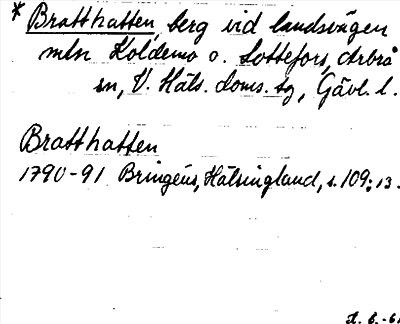 * Bratthatten, berg vid landsvägen
mln Koldemo o. Lottefors, Arbrå
sn, V. Häls. doms. sg, Gävl. l.
Bratthatten
1790-91 Bringéus, Hälsingland, s. 109; 13.